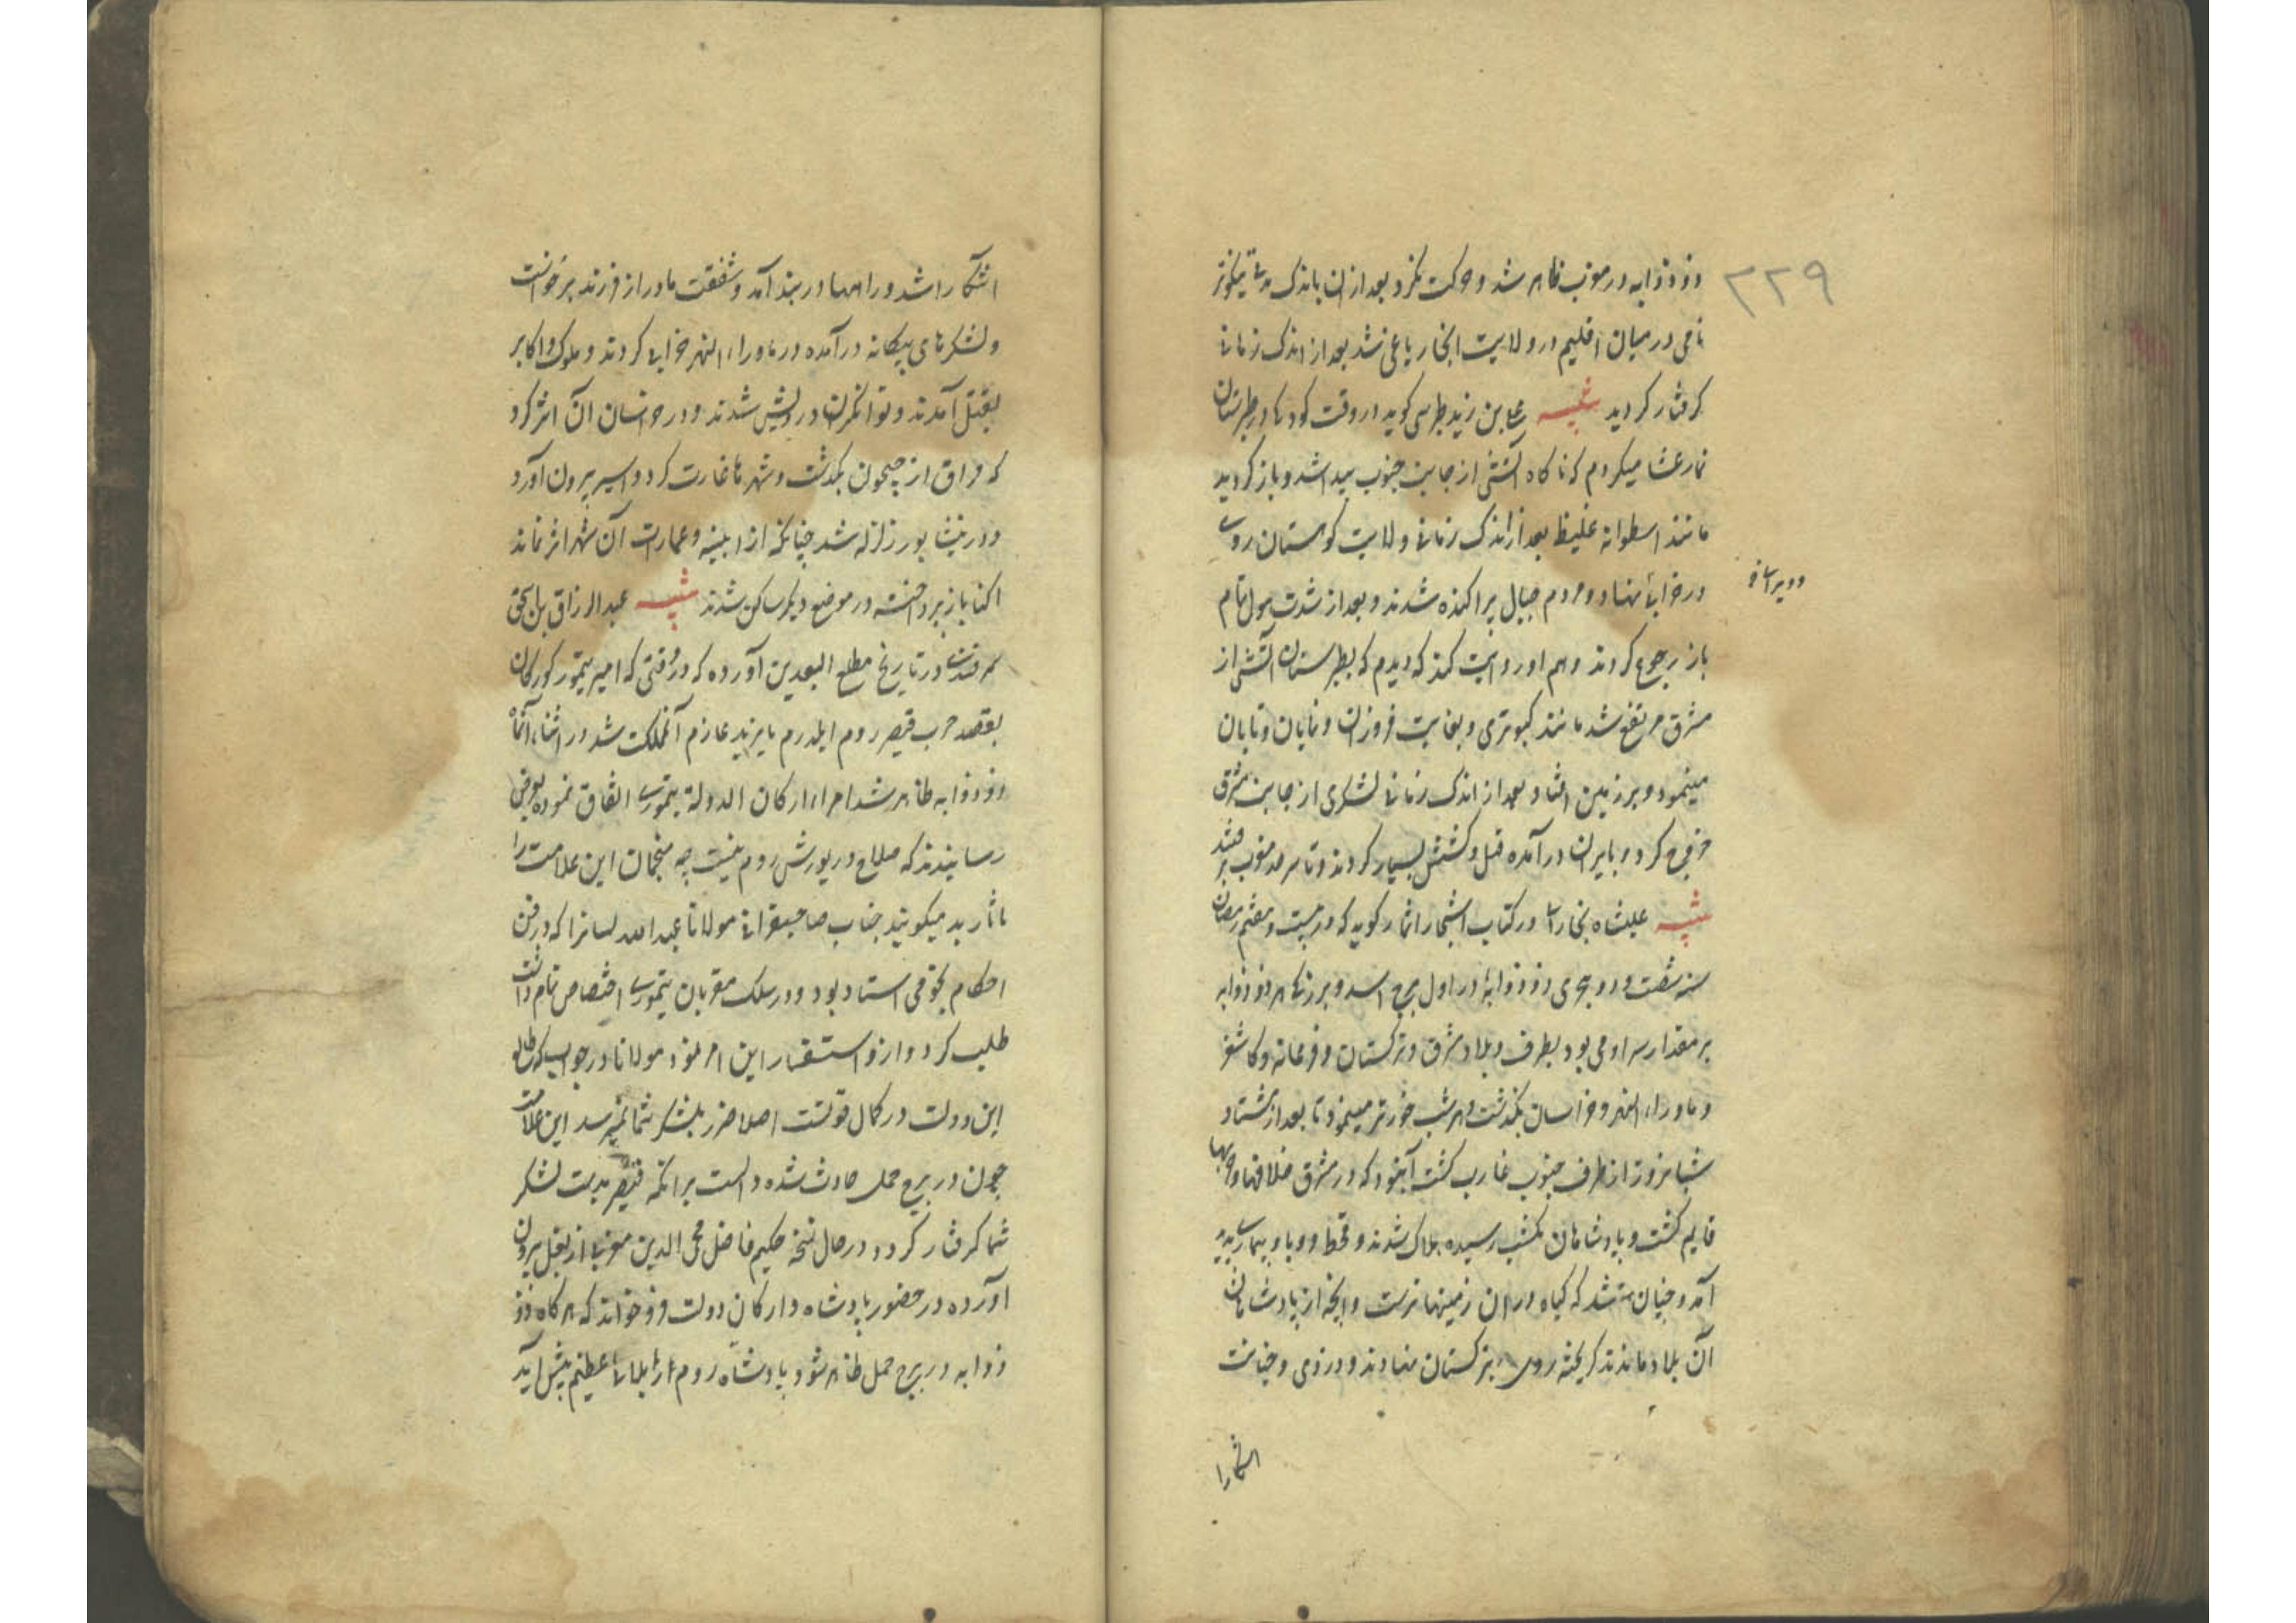 ۳۲۹
ذو ذوابه در مغرب ظاهر شد و حرکت نکرد بعد از ان باندک مدتی
نامی در میان اقلیم در ولایت انجار یاغی شد بعد از اندک زمانی
کرفتار کردید تنبیه علی بن زید طبرسی کوید در وقت کودکی در طبرستان
نماز عشا میکردم که ناکاه آتشی از جانب جنوب پیدا شد و باز کردید
مانند اسطوانه غلیظ بعد از اندک زمانی ولایت کوهستان روی
در خرابی نهاد و مردم جبال پراکنده شدند و بعد از شدت هول تمام
و ویرانی
باز رجوع کردند و هم او روایت کند که دیدم که بطبرستان آتشی از
مشرق مرتفع شد مانند کبوتری و بغایت فروزان و نمایان و تابان
مینمود و بر زمین افتاد و بعد از اندک زمانی لشکری از جانب مشرق
خروج کرد و بایران درآمده قتل و کشش بسیار کردند و تا سرحد مغرب برفتند
تنبیه علیشاه بخاری در کتاب اشجار اثمار کوید که در بیست و هفتم رمضان
سنه شصت و دو هجری ذو ذوابه در اول برج اسد و برزکی هر ذو ذوابه
بر مقدار سر ادمی بود بطرف و بلاد شرق و ترکستان و فرغانه و کاشغر
و ماوراء النهر و خراسان بکذشت و هر شب خورتر مینمود تا بعد از هشتاد
شبانروز از طرف جنوب غارب کشت آنبود که در مشرق خلافها و حربها
قایم کشت و پادشاهان بکشب رسیده هلاک شدند و قحط و وبا و بیماری پدید
آمد و چنان شد که کیاه در ان زمینها نرست و انچه از پادشاهان
آن بلاد ماندند کریخته روی بترکستان نهادند و دزدی و خیانت
اشکارا
اشکارا شد و راهها در بند آمد و شفقت مادر از فرزند برخواست
و لشکرهای بیکانه درآمده در ماوراء النهر خرابی کردند و ملوک و اکابر
بقتل آمدند و توانکران درویش شدند و در خراسان آن اثر کرد
که قراق از جیحون بکذشت و شهرها غارت کرد و اسیر بیرون آورد
و در نیشابور زلزله شد چنانکه از ابنیه و عمارات آن شهر اثر نماند
انجا باز پرداخته در موضع دیکر ساکن شدند تنبیه عبد الرزاق بن اسحق
سمرقندی در تاریخ مطلع السعدین آورده که در وقتی که امیر تیمور کورکان
بقصد حرب قیصر روم ایلدرم بایزید عازم آنمملکت شد در اثناء آنماه
ذو ذوابه ظاهر شد امراء ارکان الدولة تیموری اتفاق نموده بعرض
رسانیدند که صلاح در یورش روم نیست چه منجمان این علامت را
باثار بد میکویند جناب صاحبقرانی مولانا عبد الله لسانرا که در فن
احکام نجومی استاد بود و در سلک مقربان تیموری اختصاص تمام داشت
طلب کرد و از و استفسار این امر نمود مولانا در جواب کفت که طالع
این دولت در کمال قوتست اصلا ضرر بلشکر شما نمیرسد این علامت
چون در برج حمل حادث شده دالست برانکه قیصر بدست لشکر
شما کرفتار کردد در حال نسخه حکیم فاضل محی الدین مغربی از بغل بیرون
آورده در حضور پادشاه و ارکان دولت فروخواند که هرکاه ذو
ذوابه در برج حمل ظاهر شود پادشاه روم را بلائی عظیم پیش آید